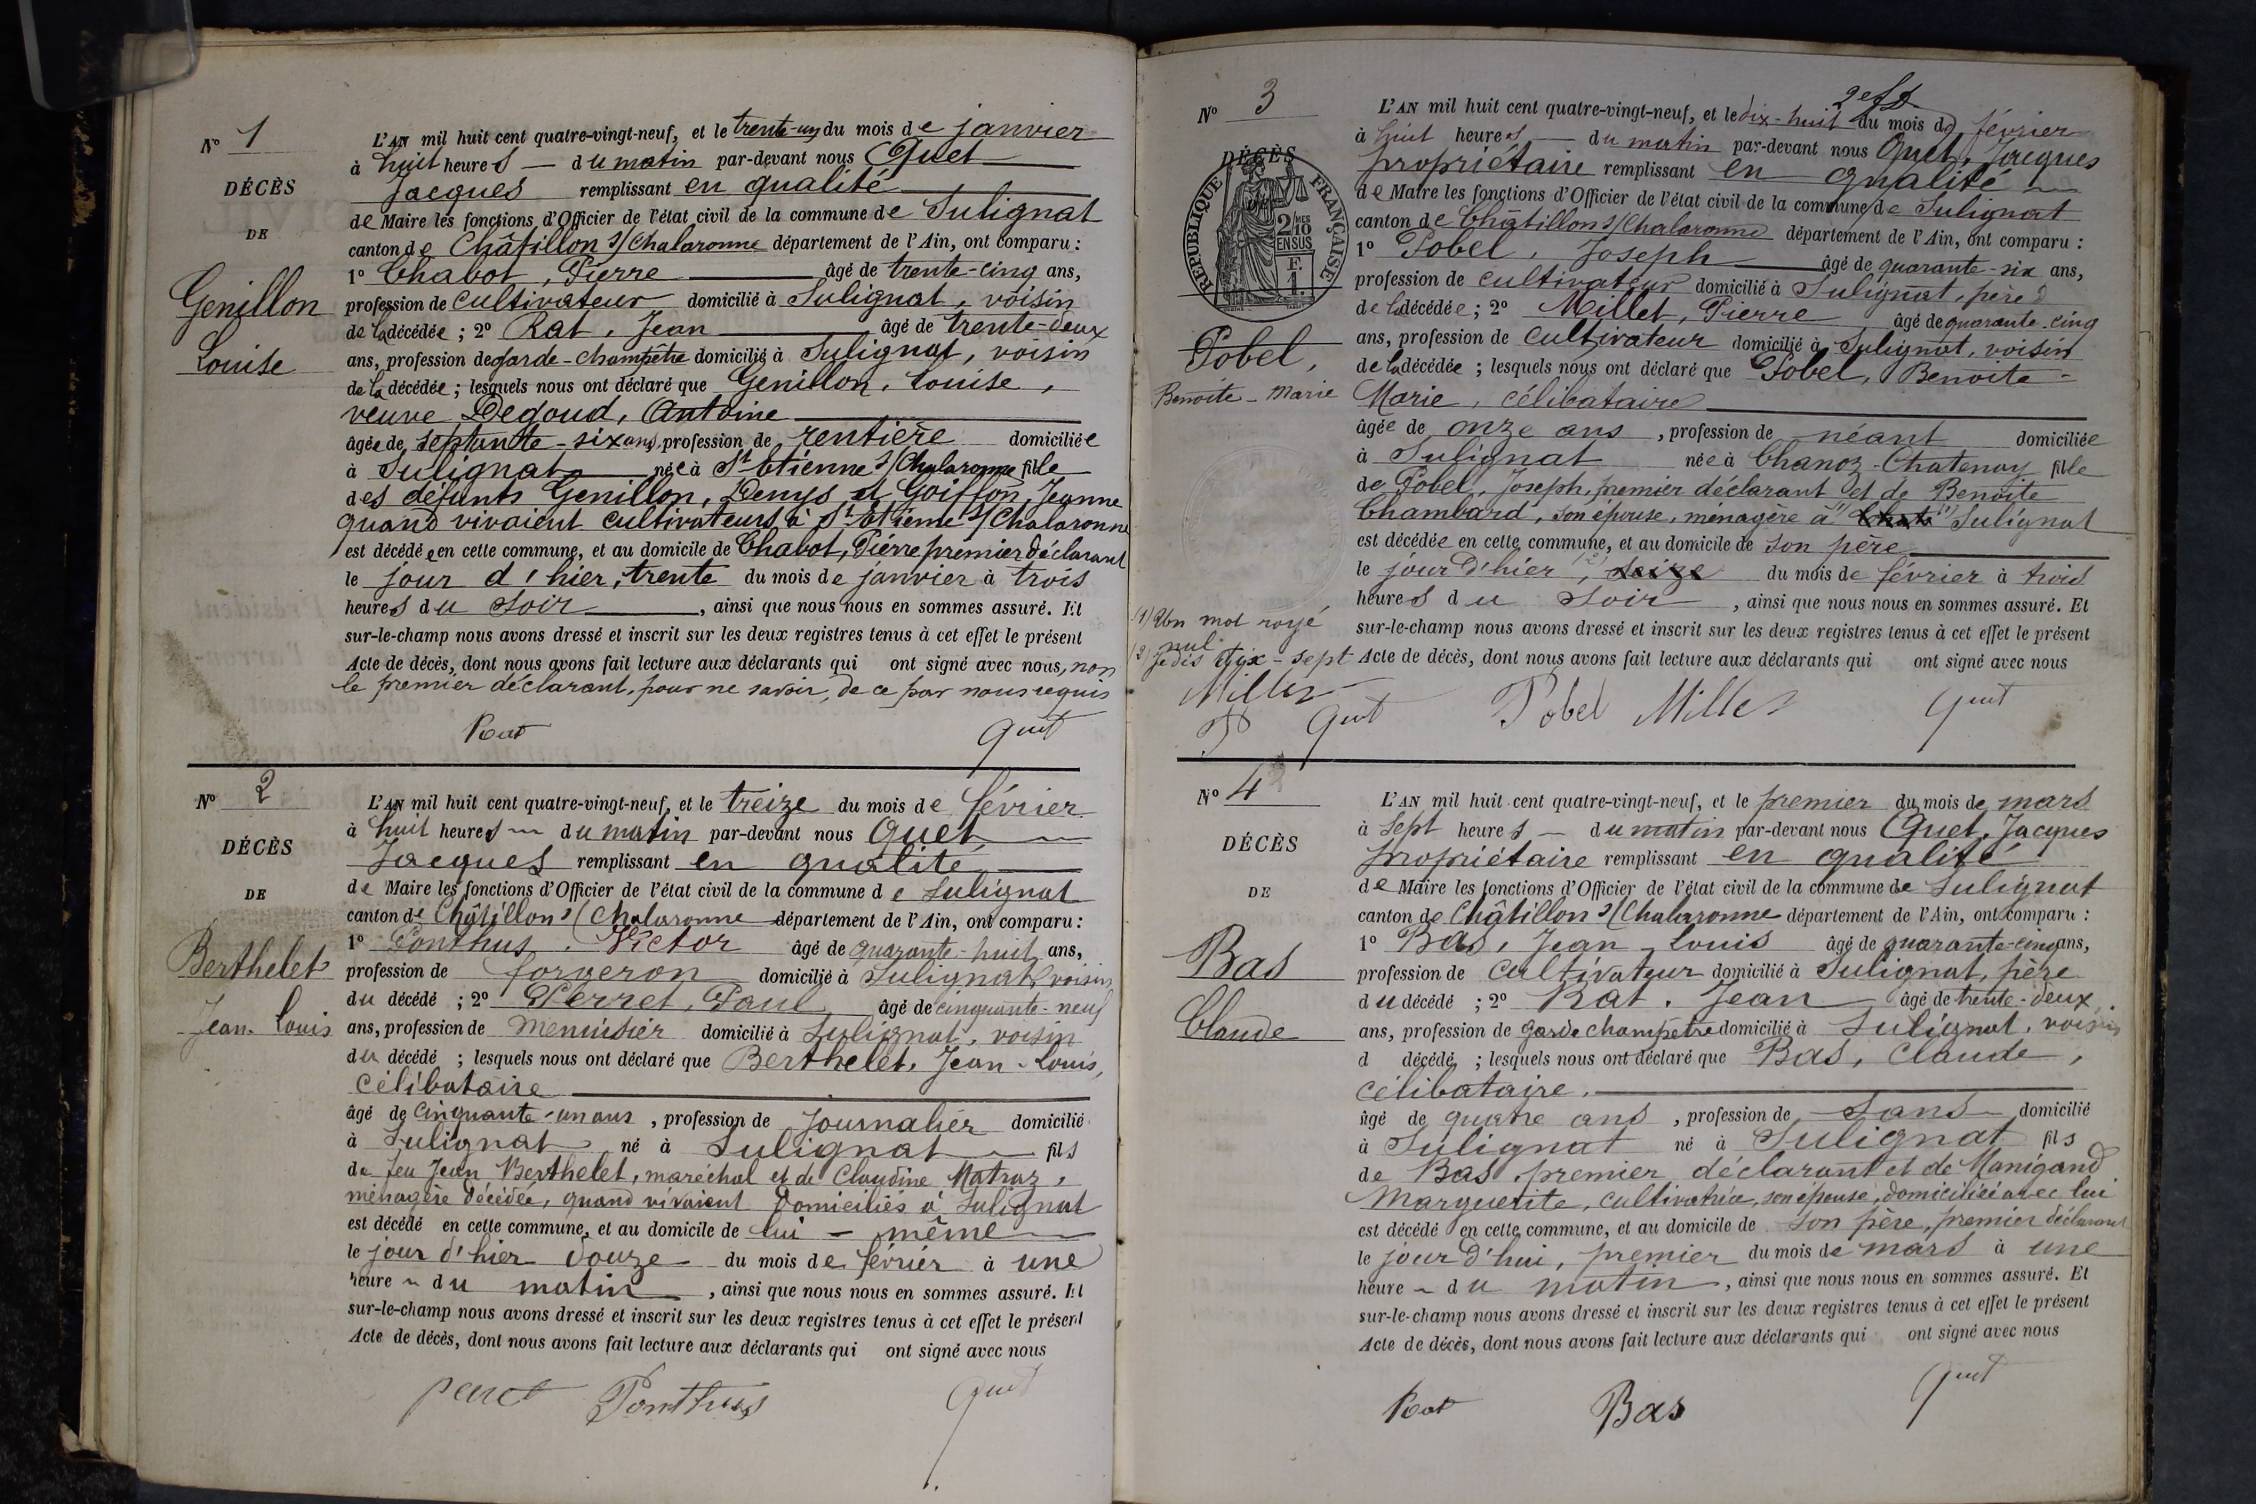 N° 1
DÉCÈS
DE
Genillon
Louise
L'AN mil huit cent quatre-vingt-neuf, et le trente-un du mois de janvier
à huit heures du matin par-devant nous Quet
Jacques remplissant en qualité
de Maire les fonctions d'Officier de l'état civil de la commune de Sulignat
canton de Châtillon s/Chalaronne département de l'Ain, ont comparu :
1° Chabot, Pierre âgé de trente-cinq ans,
profession de cultivateur domicilié à Sulignat, voisin
de la décédée ; 2° Rat, Jean âgé de trente-deux
ans, profession de garde-champêtre domicilié à Sulignat, voisin
de la décédée ; lesquels nous ont déclaré que Genillon, Louise,
veuve Degoud, Antoine
âgée de septante-six ans, profession de rentière domiciliée
à Sulignat née à St Etienne s/Chalaronne fille
des défunts Genillon, Denys et Goiffon, Jeanne
quand vivaient cultivateurs à St Etienne s/Chalaronne
est décédée en cette commune, et au domicile de Chabot, Pierre premier déclarant
le jour d'hier, trente du mois de janvier à trois
heures du soir, ainsi que nous nous en sommes assuré. Et
sur-le-champ nous avons dressé et inscrit sur les deux registres tenus à cet effet le présent
Acte de décès, dont nous avons fait lecture aux déclarants qui ont signé avec nous, non
le premier déclarant, pour ne savoir, de ce par nous requis
Rat Quet
N° 2
DÉCÈS
DE
Berthelet
Jean-Louis
L'AN mil huit cent quatre-vingt-neuf, et le treize du mois de février
à huit heures du matin par-devant nous Quet
Jacques remplissant en qualité
de Maire les fonctions d'Officier de l'état civil de la commune de Sulignat
canton de Châtillon s/Chalaronne département de l'Ain, ont comparu :
1° Ponthus, Victor âgé de quarante-huit ans,
profession de forgeron domicilié à Sulignat, voisin
du décédé ; 2° Perret, Paul âgé de cinquante-neuf
ans, profession de menuisier domicilié à Sulignat, voisin
du décédé ; lesquels nous ont déclaré que Berthelet, Jean-Louis,
célibataire
âgé de cinquante-un ans, profession de journalier domicilié
à Sulignat né à Sulignat fils
de feu Jean Berthelet, maréchal et de Claudine Matraz,
ménagère décédée, quand vivaient domiciliés à Sulignat
est décédé en cette commune, et au domicile de lui-même
le jour d'hier douze du mois de février à une
heure du matin, ainsi que nous nous en sommes assuré. Et
sur-le-champ nous avons dressé et inscrit sur les deux registres tenus à cet effet le présent
Acte de décès, dont nous avons fait lecture aux déclarants qui ont signé avec nous
Perret Ponthus Quet
N° 3
DÉCÈS
RÉPUBLIQUE FRANÇAISE
2 MES
10
EN SUS
F.
1.
Pobel,
Benoite-Marie
L'AN mil huit cent quatre-vingt-neuf, et le dix-huit du mois de février
à huit heures du matin par-devant nous Quet, Jacques
propriétaire remplissant en qualité
de Maire les fonctions d'Officier de l'état civil de la commune de Sulignat
canton de Châtillon s/Chalaronne département de l'Ain, ont comparu :
1° Pobel, Joseph âgé de quarante-six ans,
profession de cultivateur domicilié à Sulignat, père
de la décédée ; 2° Millet, Pierre âgé de quarante-cinq
ans, profession de cultivateur domicilié à Sulignat, voisin
de la décédée ; lesquels nous ont déclaré que Pobel, Benoite-
Marie, célibataire
âgée de onze ans, profession de néant domiciliée
à Sulignat née à Chanoz-Chatenay fille
de Pobel, Joseph, premier déclarant et de Benoite
Chambard, son épouse, ménagère à (1) Sulignat
est décédée en cette commune, et au domicile de son père
le jour d'hier (2), seize du mois de février à trois
heures du soir, ainsi que nous nous en sommes assuré. Et
sur-le-champ nous avons dressé et inscrit sur les deux registres tenus à cet effet le présent
Acte de décès, dont nous avons fait lecture aux déclarants qui ont signé avec nous
(1) Un mot rayé
nul
(2) Je dis dix-sept
Millet
P Quet
Pobel Millet Quet
N° 4
DÉCÈS
DE
Bas
Claude
L'AN mil huit cent quatre-vingt-neuf, et le premier du mois de mars
à sept heures du matin par-devant nous Quet, Jacques
propriétaire remplissant en qualité
de Maire les fonctions d'Officier de l'état civil de la commune de Sulignat
canton de Châtillon s/Chalaronne département de l'Ain, ont comparu :
1° Bas, Jean-Louis âgé de quarante-cinq ans,
profession de cultivateur domicilié à Sulignat, père
du décédé ; 2° Rat, Jean âgé de trente-deux
ans, profession de garde champêtre domicilié à Sulignat, voisin
d décédé ; lesquels nous ont déclaré que Bas, Claude,
célibataire.
âgé de quatre ans, profession de sans domicilié
à Sulignat né à Sulignat fils
de Bas, premier déclarant et de Manigand
Marguerite, cultivatrice, son épouse, domiciliée avec lui
est décédé en cette commune, et au domicile de son père, premier déclarant
le jour d'hui, premier du mois de mars à une
heure du matin, ainsi que nous nous en sommes assuré. Et
sur-le-champ nous avons dressé et inscrit sur les deux registres tenus à cet effet le présent
Acte de décès, dont nous avons fait lecture aux déclarants qui ont signé avec nous
Rat Bas Quet